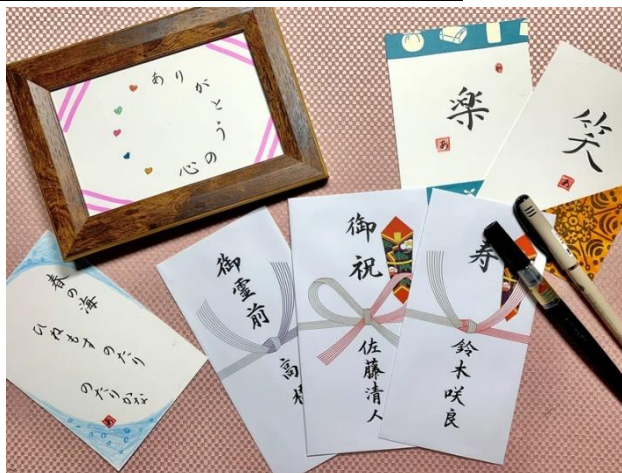 ありがとうの心
楽
あ
笑
あ
春の海
ひねもすのたり
のたりかな
御霊前
高橋
御祝
佐藤清人
寿
鈴木咲良